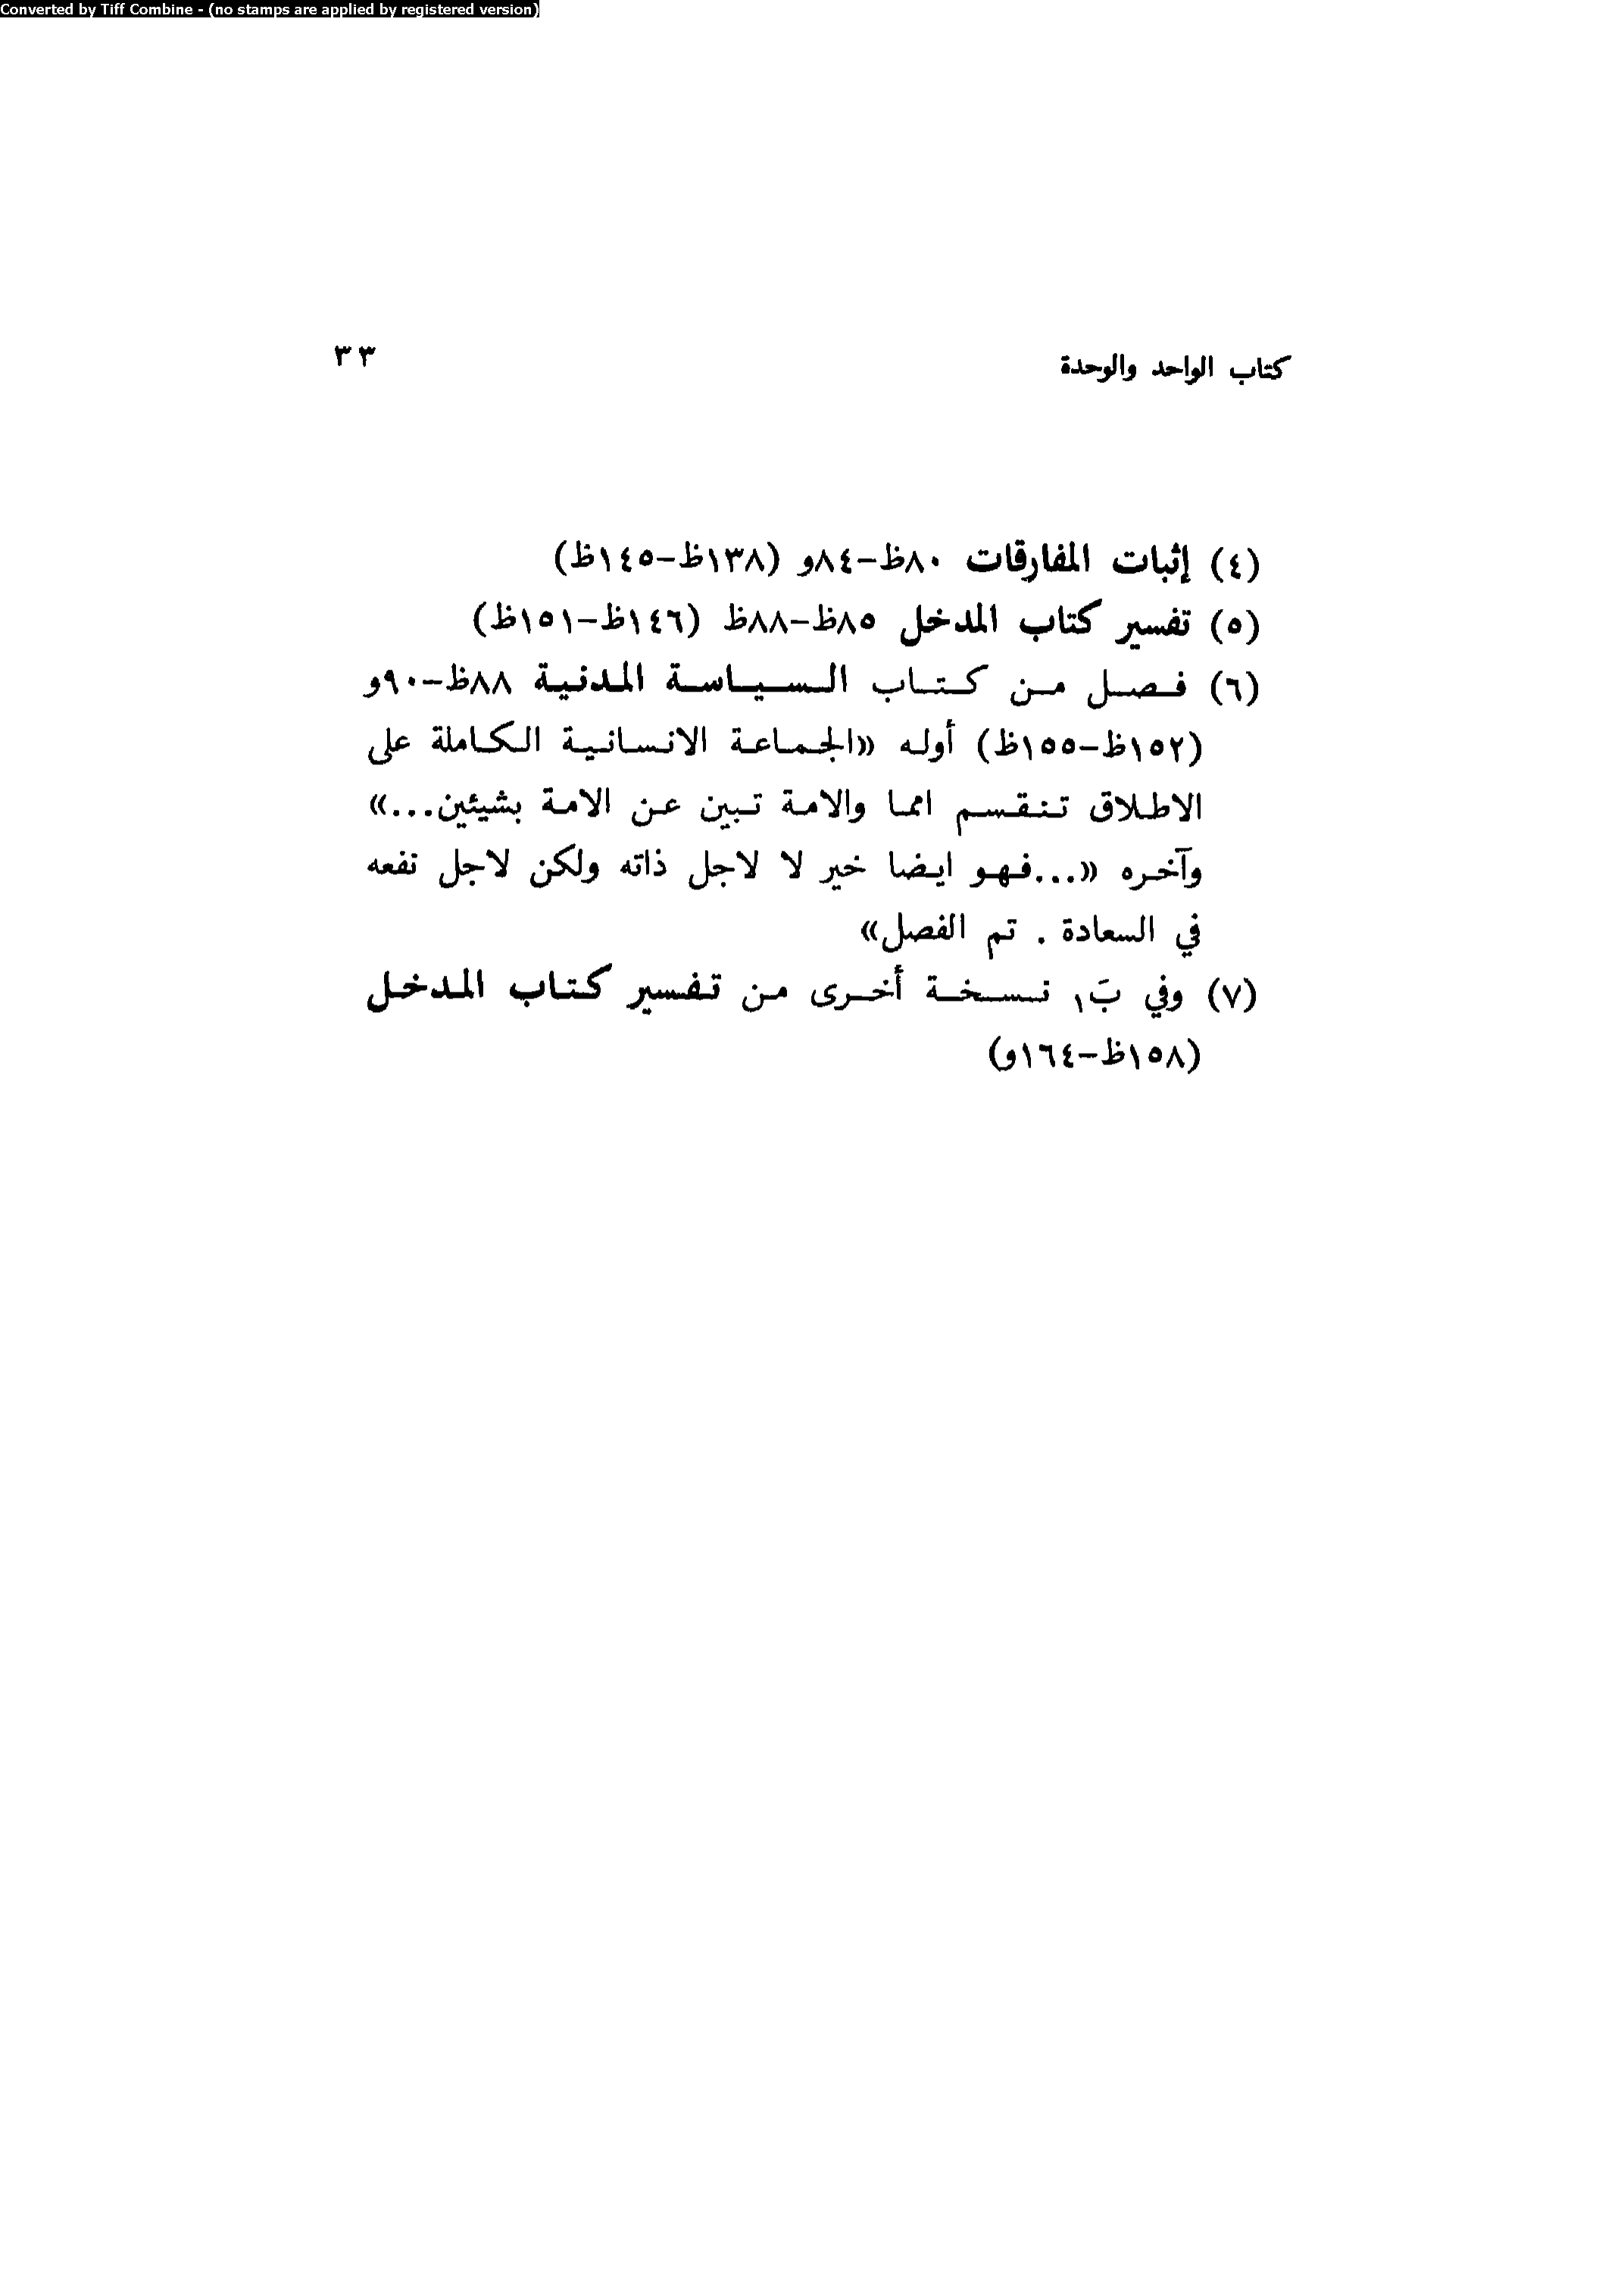 Converted by Tiff Combine - (no stamps are applied by registered version)
كتاب الواحد والوحدة ٣٣
(٤) إثبات المفارقات ٨٠ظ–٨٤و (١٣٨ظ–١٤٥ظ)
(٥) تفسير كتاب المدخل ٨٥ظ–٨٨ظ (١٤٦ظ–١٥١ظ)
(٦) فصل من كتاب السياسة المدنية ٨٨ظ–٩٠و
(١٥٢ظ–١٥٥ظ) أوله «الجماعة الانسانية الكاملة على
الاطلاق تنقسم امما والامة تبين عن الامة بشيئين...»
وآخره «...فهو ايضا خير لا لاجل ذاته ولكن لاجل نفعه
في السعادة . تم الفصل»
(٧) وفي بَ١ نسخة أخرى من تفسير كتاب المدخل
(١٥٨ظ–١٦٤و)